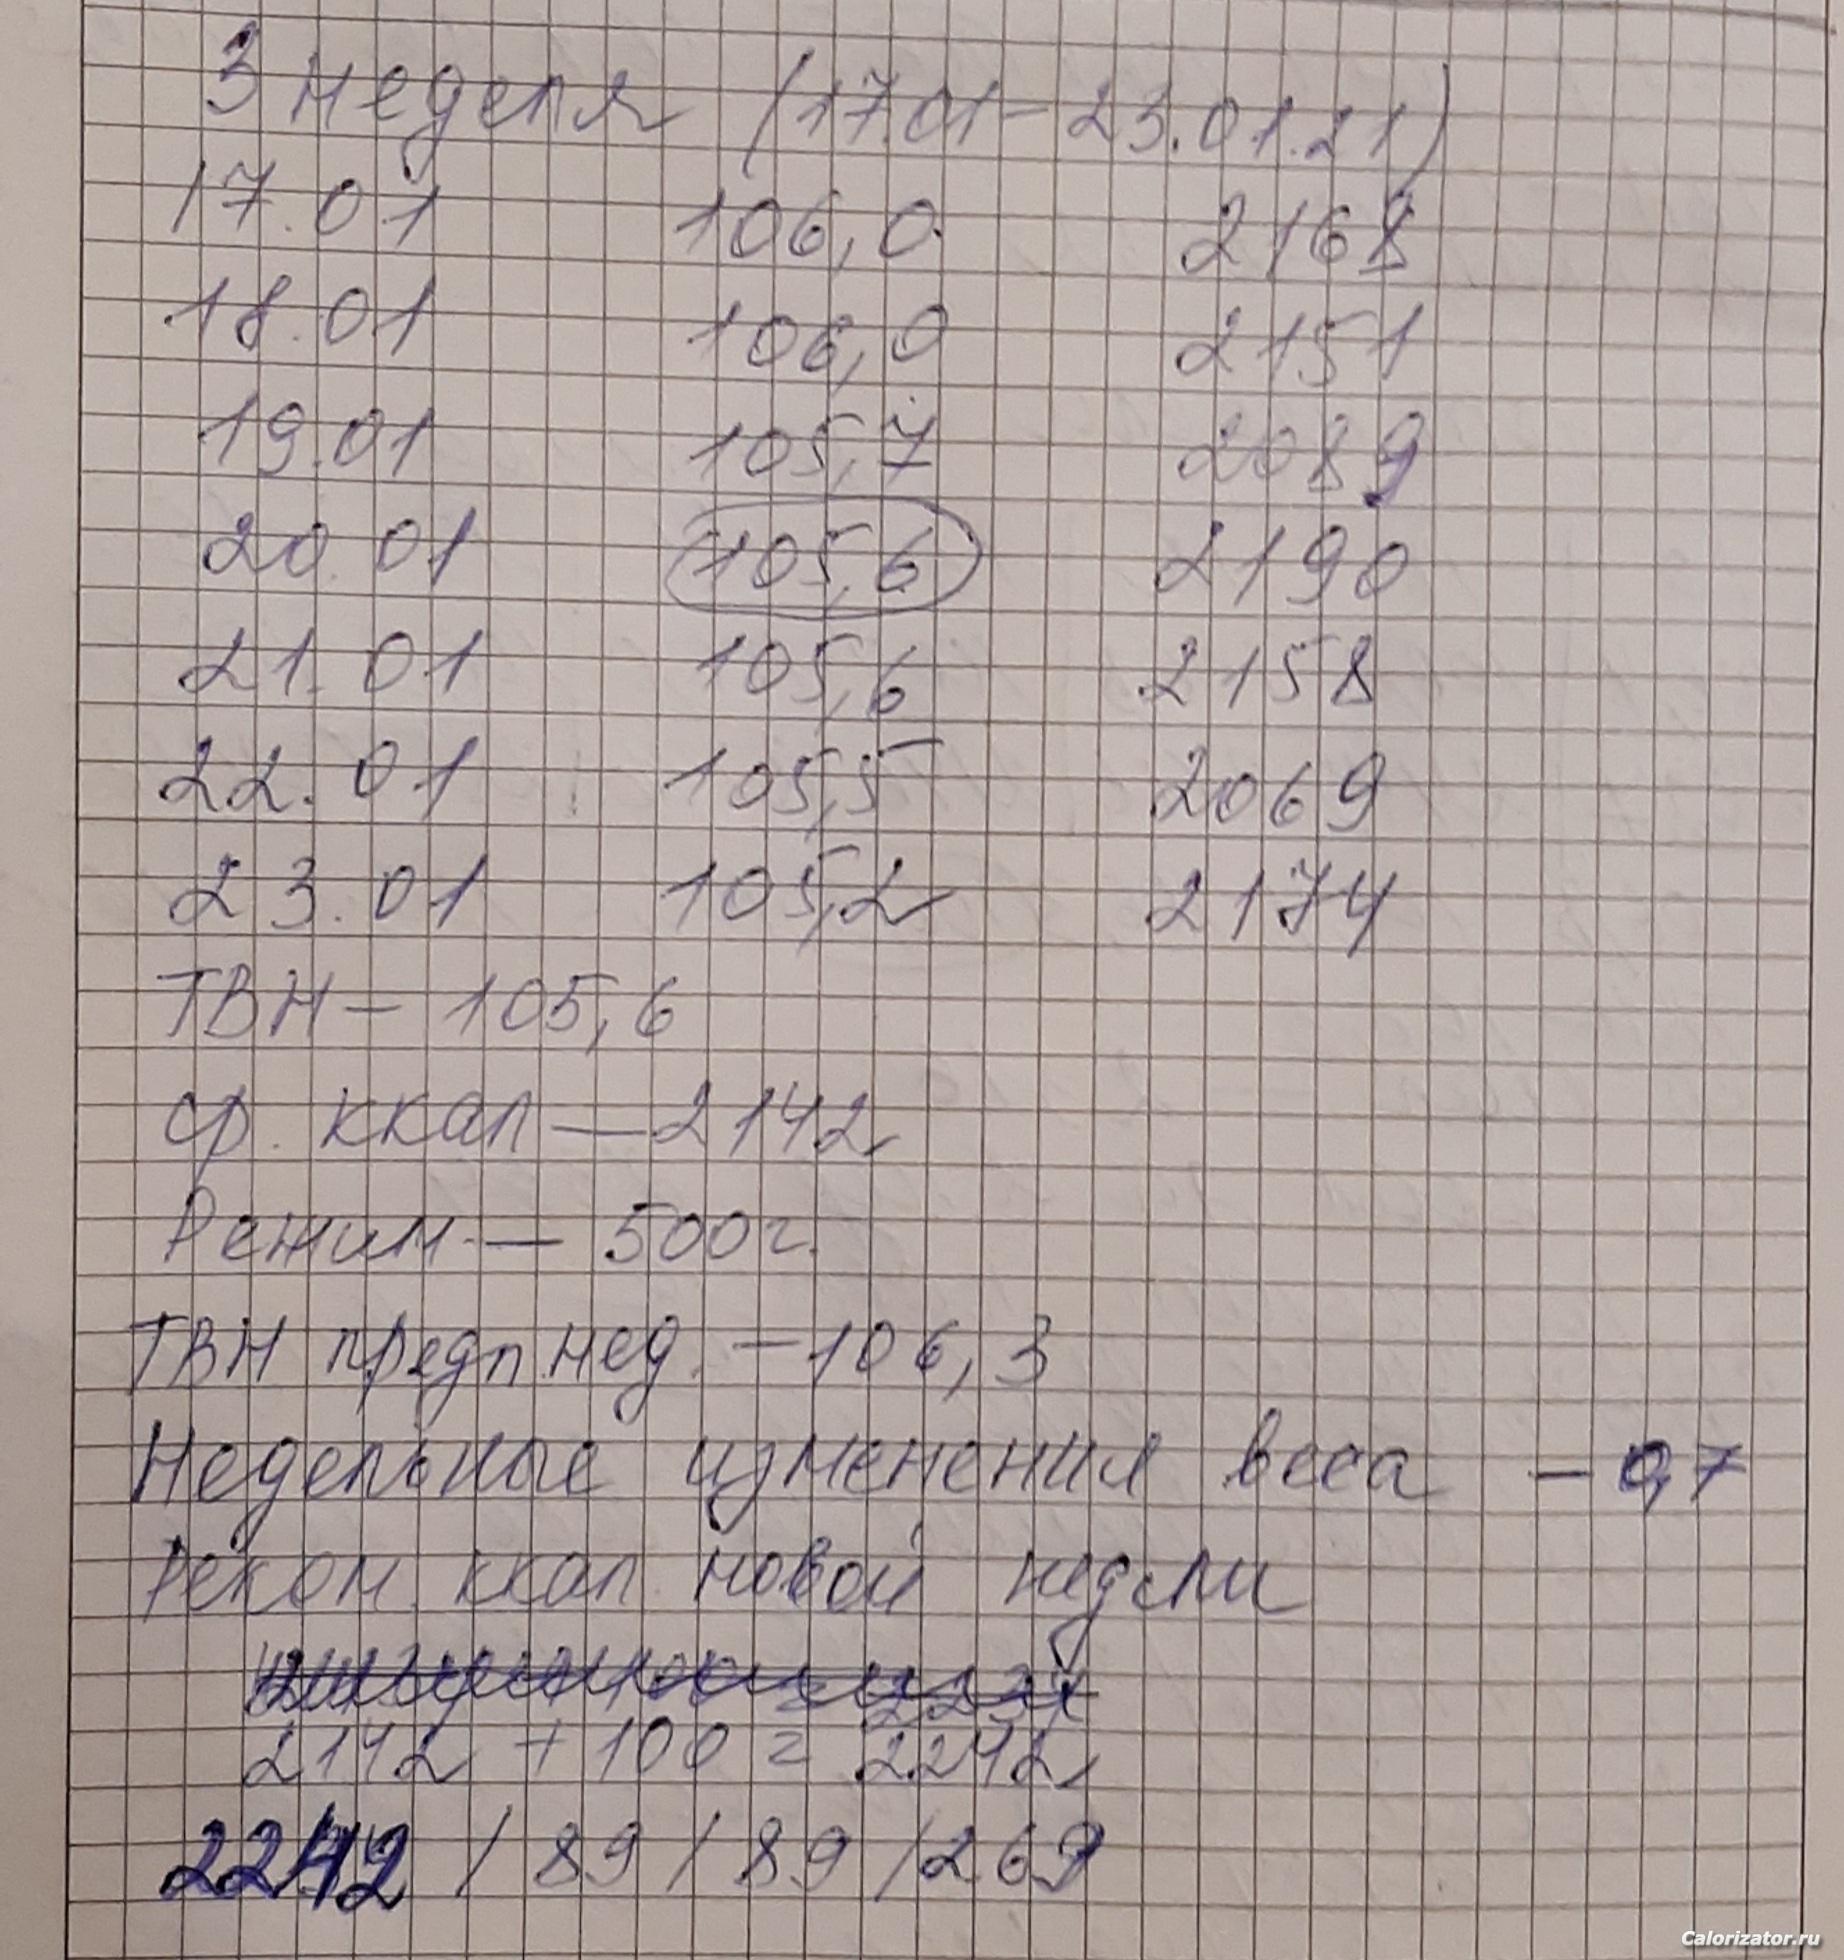 3 неделя (17.01-23.01.21)
17.01 106,0 2168
18.01 106,0 2151
19.01 105,7 2089
20.01 105,6 2190
21.01 105,6 2158
22.01 105,5 2069
23.01 105,2 2174
ТВН - 105,6
ср. ккал - 2142
Режим - 500 г.
ТВН предп. нед. - 106,3
Недельные изменения веса - 0,7
Реком. ккал новой недели
2142 + 100 = 2242
2242 / 89 / 89 / 269
Calorizator.ru